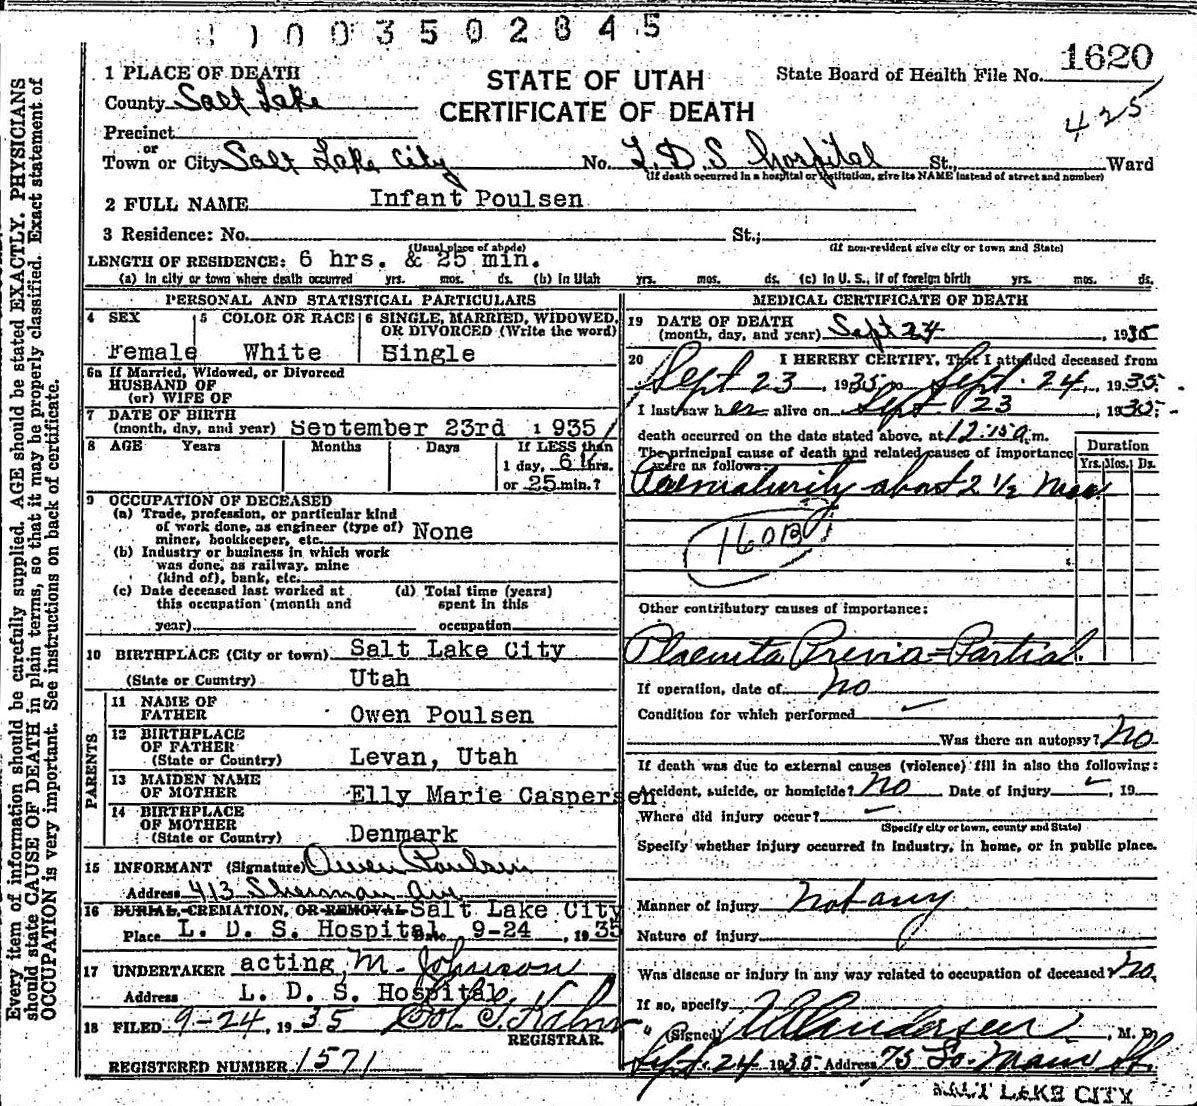 1003502845
1620
425
1 PLACE OF DEATH
STATE OF UTAH
CERTIFICATE OF DEATH
State Board of Health File No.
County Salt Lake
Precinct
or
Town or City Salt Lake City No. L.D.S Hospital St., Ward
(If death occurred in a hospital or institution, give its NAME instead of street and number)
2 FULL NAME Infant Poulsen
3 Residence: No. St.;
(Usual place of abode) (If non-resident give city or town and State)
LENGTH OF RESIDENCE: 6 hrs. & 25 min.
(a) In city or town where death occurred yrs. mos. ds. (b) In Utah yrs. mos. ds. (c) In U. S., if of foreign birth yrs. mos. ds.
PERSONAL AND STATISTICAL PARTICULARS
4 SEX 5 COLOR OR RACE 6 SINGLE, MARRIED, WIDOWED, OR DIVORCED (Write the word)
Female White Single
6a If Married, Widowed, or Divorced
HUSBAND OF
(or) WIFE OF
7 DATE OF BIRTH
(month, day, and year) September 23rd 1935
8 AGE Years Months Days If LESS than
1 day, 6 hrs.
or 25 min.?
9 OCCUPATION OF DECEASED
(a) Trade, profession, or particular kind
of work done, as engineer (type of)
miner, bookkeeper, etc. None
(b) Industry or business in which work
was done, as railway, mine
(kind of), bank, etc.
(c) Date deceased last worked at (d) Total time (years)
this occupation (month and spent in this
year) occupation
10 BIRTHPLACE (City or town) Salt Lake City
(State or Country) Utah
PARENTS
11 NAME OF
FATHER Owen Poulsen
12 BIRTHPLACE
OF FATHER
(State or Country) Levan, Utah
13 MAIDEN NAME
OF MOTHER Elly Marie Caspersen
14 BIRTHPLACE
OF MOTHER
(State or Country) Denmark
15 INFORMANT (Signature) Owen Poulsen
Address 413 Sherman Ave
16 BURIAL, CREMATION, OR REMOVAL Salt Lake City
Place L. D. S. Hospital Date 9-24 , 1935
17 UNDERTAKER acting M. Johnson
Address L. D. S. Hospital
18 FILED 9-24, 1935
REGISTRAR.
REGISTERED NUMBER 1571
MEDICAL CERTIFICATE OF DEATH
19 DATE OF DEATH
(month, day, and year) Sept 24 , 1935
20 I HEREBY CERTIFY, That I attended deceased from
Sept 23 , 1935 to Sept. 24 , 1935.
I last saw her alive on Sept 23 , 1935.
death occurred on the date stated above, at 12:15 a.m.
The principal cause of death and related causes of importance
were as follows:
Duration
Yrs. Mos. Ds.
Praematurity about 2 1/2 Mos.
160B
Other contributory causes of importance:
Placenta Previa = Partial.
If operation, date of no
Condition for which performed
Was there an autopsy? No
If death was due to external causes (violence) fill in also the following:
Accident, suicide, or homicide? No Date of injury , 19
Where did injury occur?
(Specify city or town, county and State)
Specify whether injury occurred in industry, in home, or in public place.
Manner of injury not any
Nature of injury
Was disease or injury in any way related to occupation of deceased? No.
If so, specify
(Signed) Andersen , M. D.
Sept. 24 1935 Address 75 So. Main St.
SALT LAKE CITY
Every item of information should be carefully supplied. AGE should be stated EXACTLY. PHYSICIANS
should state CAUSE OF DEATH in plain terms, so that it may be properly classified. Exact statement of
OCCUPATION is very important. See instructions on back of certificate.